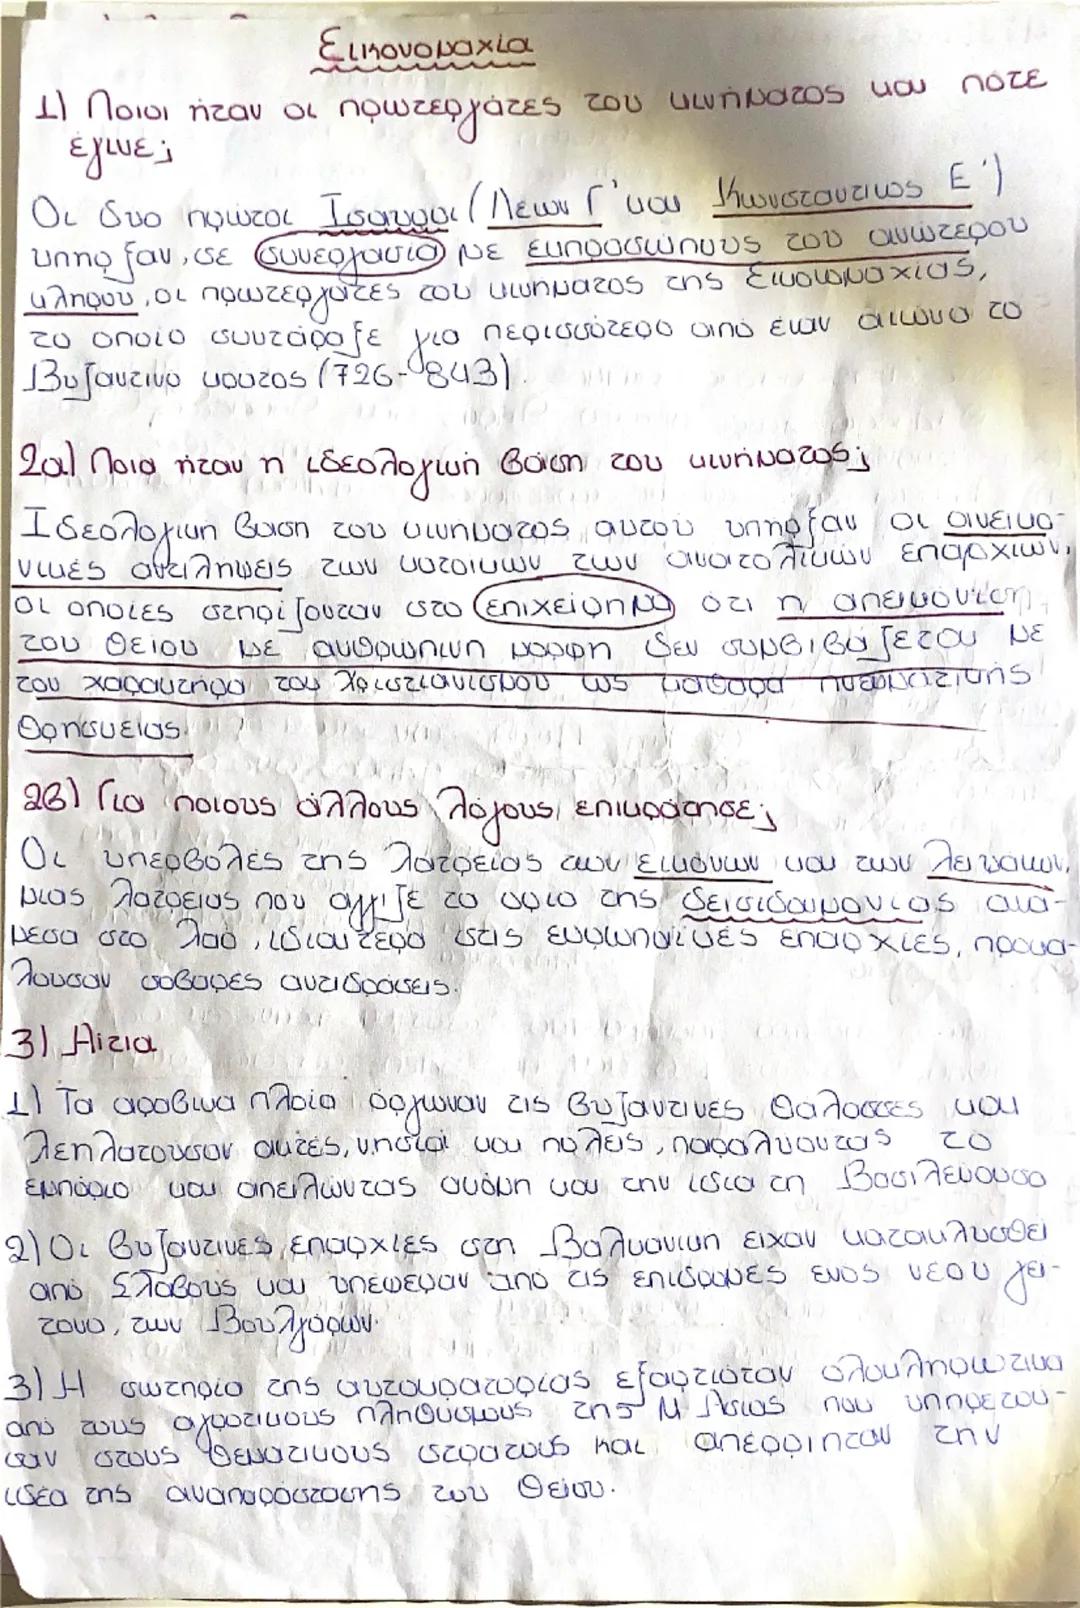 Εικονομαχία
1) Ποιοι ήταν οι πρωτεργάτες του κινήματος και πότε
έγινε;
Οι δυο πρώτοι Ίσαυροι (Λέων Γ' και Κωνσταντινος Ε')
υπηρξαν, σε συνεργασία με εκπροσώπους του ανώτερου
κλήρου, οι πρωτεργάτες του κινήματος της Εικονομαχίας,
το οποίο συντάραξε για περισσότερο από έναν αιώνα το
Βυζαντινό κράτος (726-843).
2α) Ποια ήταν η ιδεολογική βάση του κινήματος;
Ιδεολογικη βαση του κινηματος αυτού υπηρξαν οι ανεικο-
νικές αντιλήψεις των κατοικων των ανατολικών επαρχιών,
οι οποιες στηρίζονταν στο επιχείρημα ότι η απεικόνιση
του θείου με ανθρώπινη μορφη δεν συμβιβάζεται με
τον χαρακτήρα του Χριστιανισμού ως καθαρά πνευματικής
θρησκείας.
2β) Για ποιους άλλους λόγους επικράτησε;
Οι υπερβολές της λατρείας των εικόνων και των λειψάνων,
μιας λατρείας που άγγιζε το οριο της δεισιδαιμονίας ανά-
μεσα στο λαό, ιδιαιτερα στις ευρωπαϊκές επαρχίες, προκα-
λουσαν σοβαρές αντιδράσεις.
3) Αίτια
1) Τα αραβικα πλοία όργωναν τις βυζαντινές θάλασσες και
λεηλατουσαν ακτές, νησιά και πόλεις, παραλύοντας το
εμπόριο και απειλώντας ακόμη και την ιδια τη Βασιλεύουσα
2) Οι βυζαντινές επαρχίες στη Βαλκανικη ειχαν κατακλυσθεί
από Σλάβους και υπέφεραν από τις επιδρομές ενός νέου γεί-
τονα, των Βουλγάρων.
3) Η σωτηρία της αυτοκρατορίας εξαρτιόταν ολοκληρωτικα
από τους αγροτικους πληθυσμους της Μ. Ασίας που υπηρετου-
σαν στους θεματικους στρατούς και απέρριπταν την
ιδέα της αναπαράστασης του Θείου.